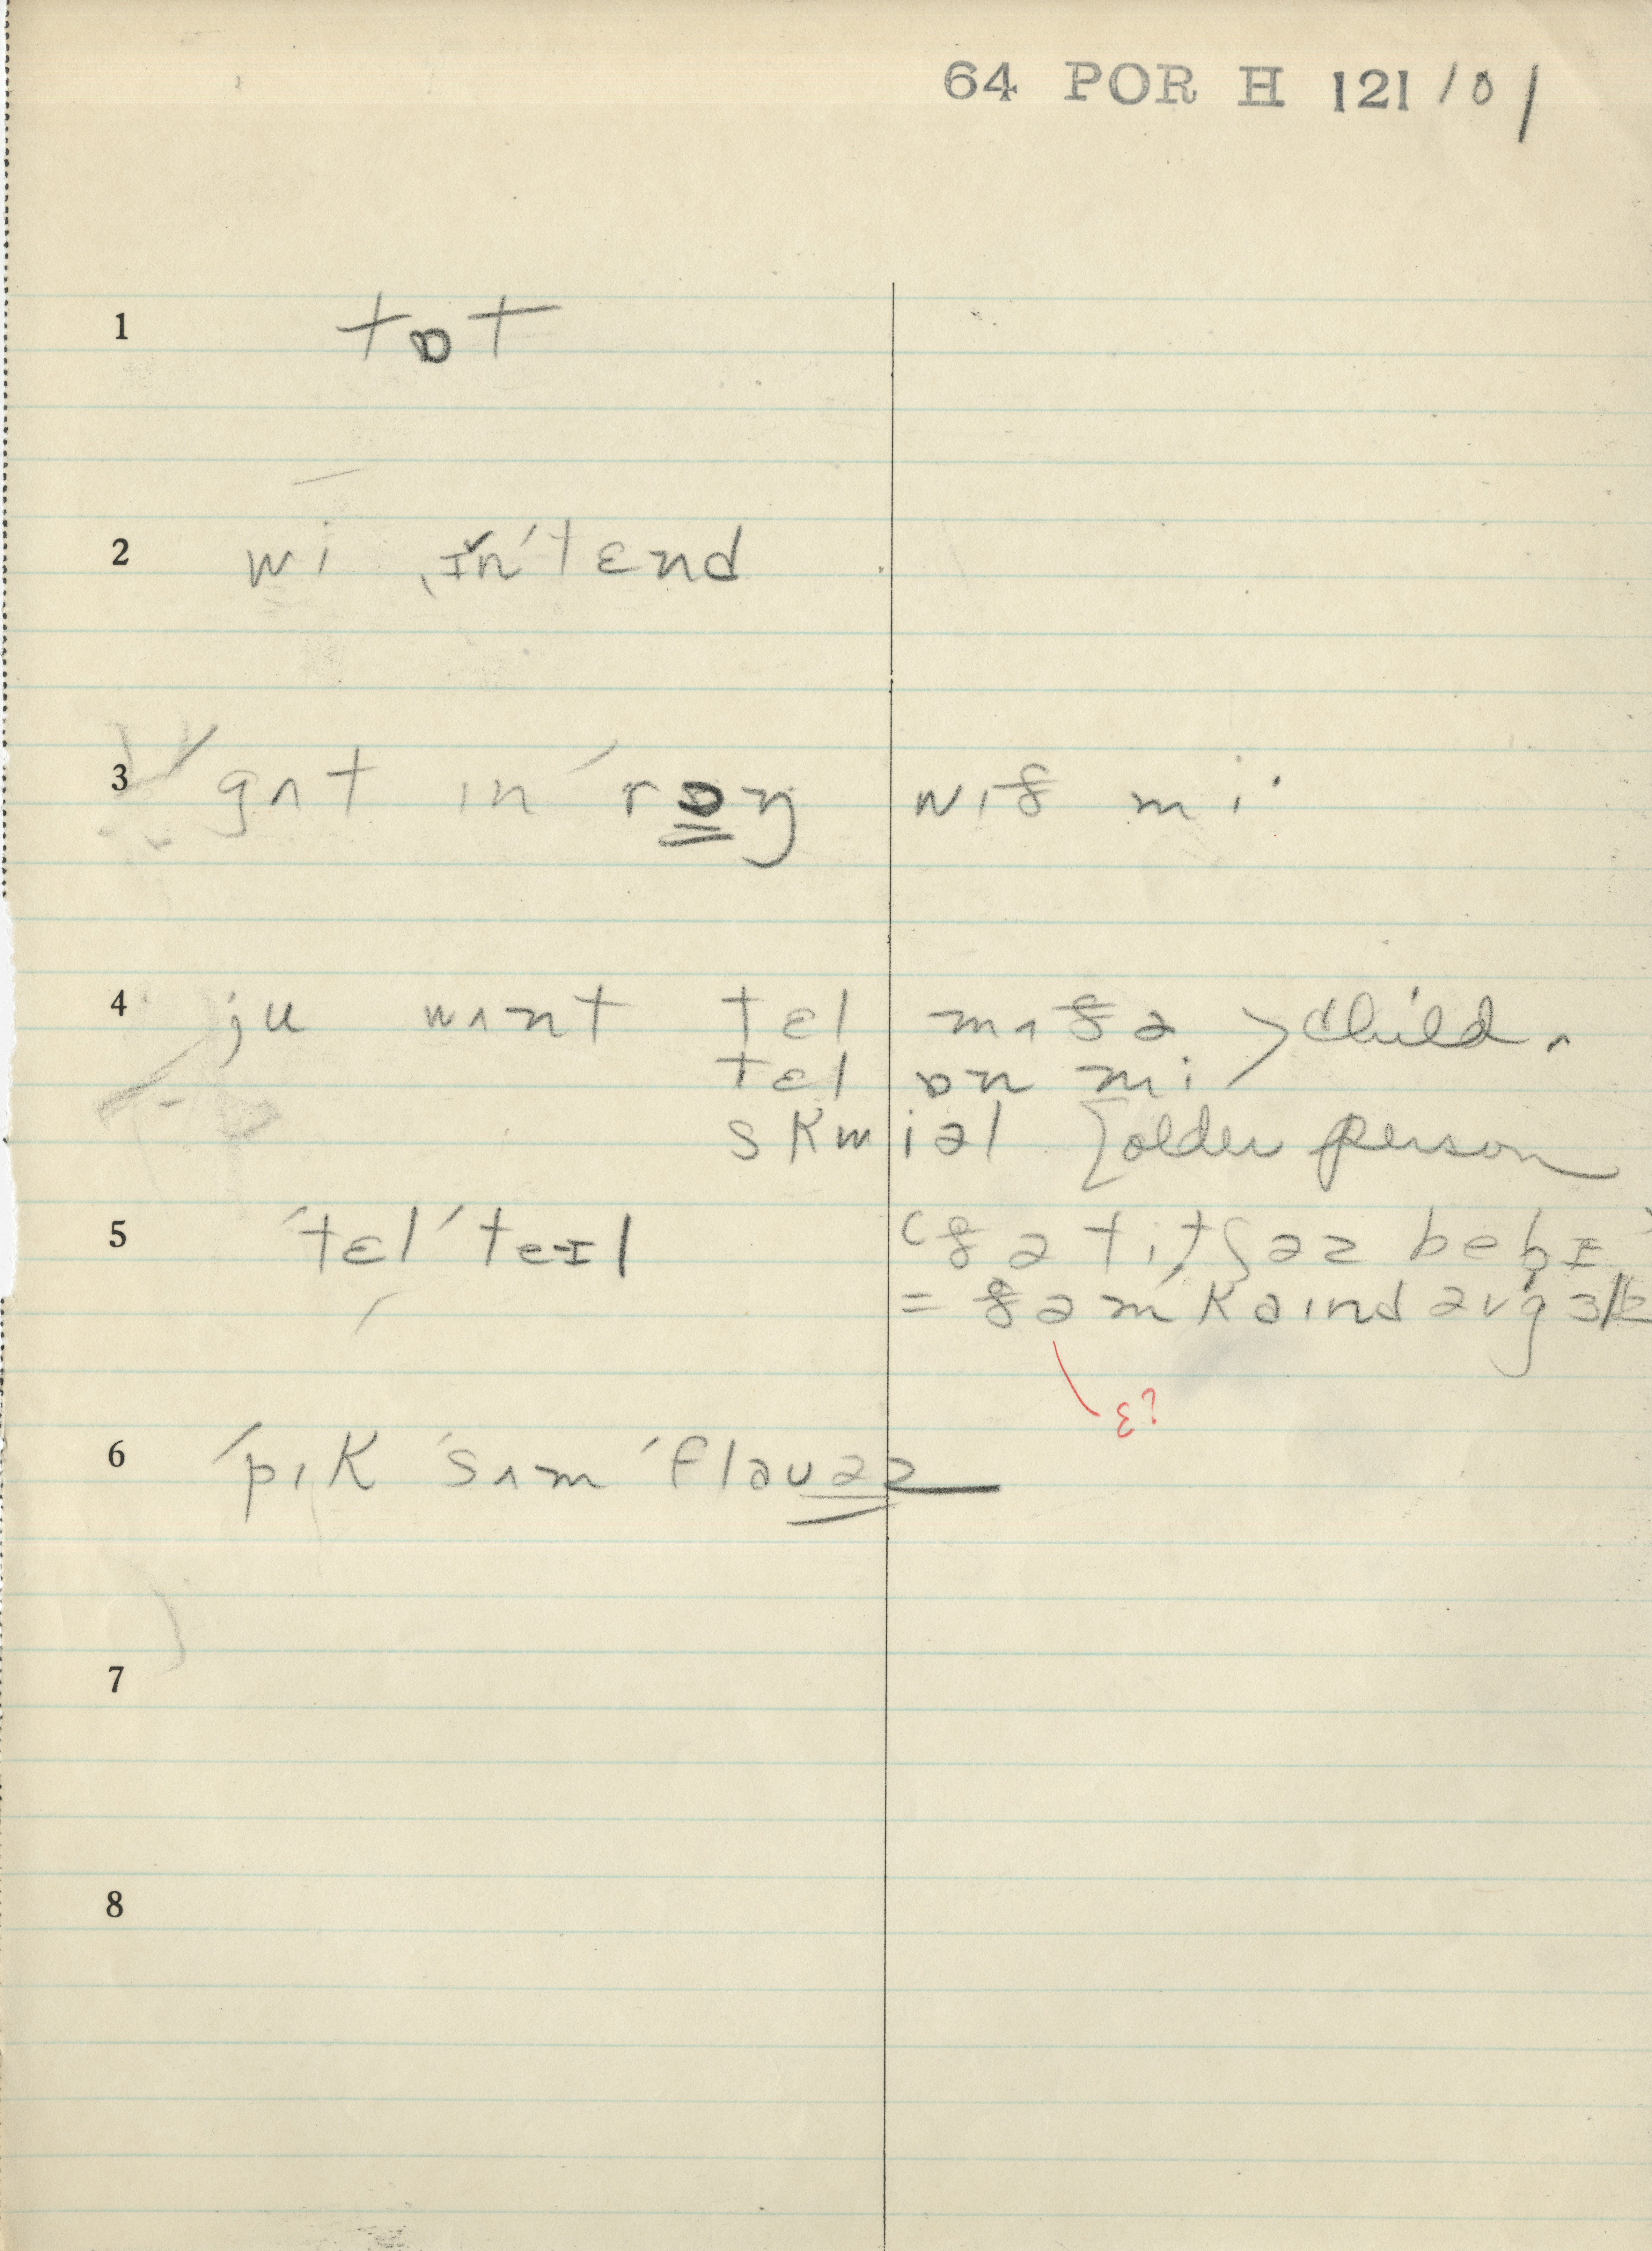 64 POR H 121/01
1 tɒt
2 wi ˌɪn'tɛnd
3 gʌt ɪn 'rɒŋ wɪð mi·
4 ju wʌnt tɛl mʌðə > child.
tɛl ɒn mi
skwiəl [older person
5 'tɛl 'teɪl (ðə titʃəz bebɪ)
= ðəm 'kaɪnd əv g
ɛ?
6 'pɪk 'sʌm 'flaʊəz
7
8